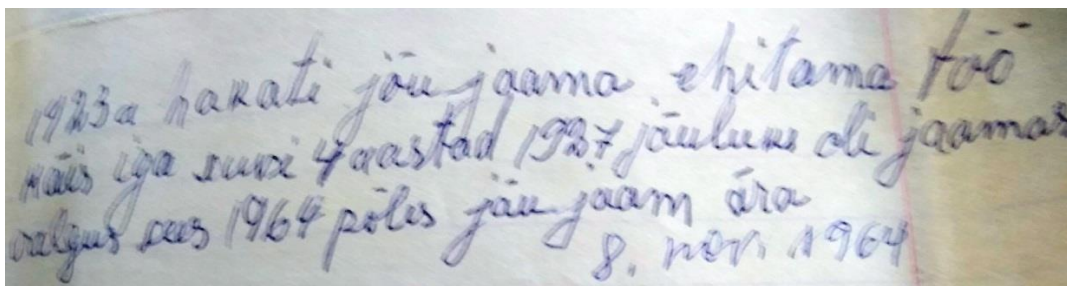 1923a hakati jõu jaama ehitama töö
käis iga suvi 4 aastad 1927 jõuluns oli jaamas
valgus sees 1964 põles jõu jaam ära
8. nov. 1964